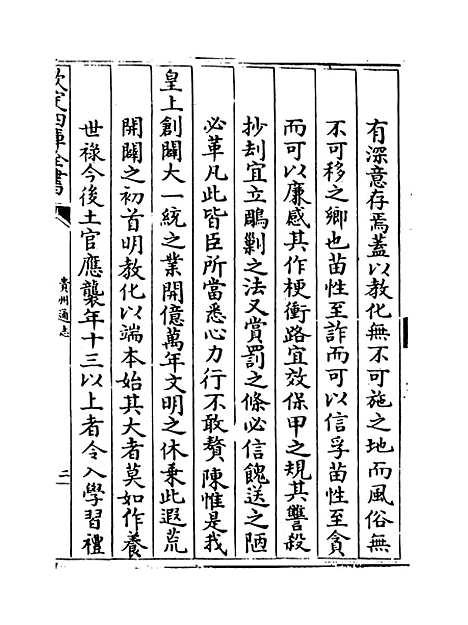 有深意存焉蓋以教化無不可施之地而風俗無
不可移之鄉也苗性至詐而可以信孚苗性至貪
而可以廉感其作梗衝路宜效保甲之規其讐殺
抄刦宜立鵰剿之法又賞罰之條必信餽送之陋
必革凡此皆臣所當悉心力行不敢贅陳惟是我
皇上創闢大一統之業開億萬年文明之休乗此遐荒
開闢之初首明教化以端本始其大者莫如作養
世祿今後土官應襲年十三以上者令入學習禮
欽定四庫全書
貴州通志
二